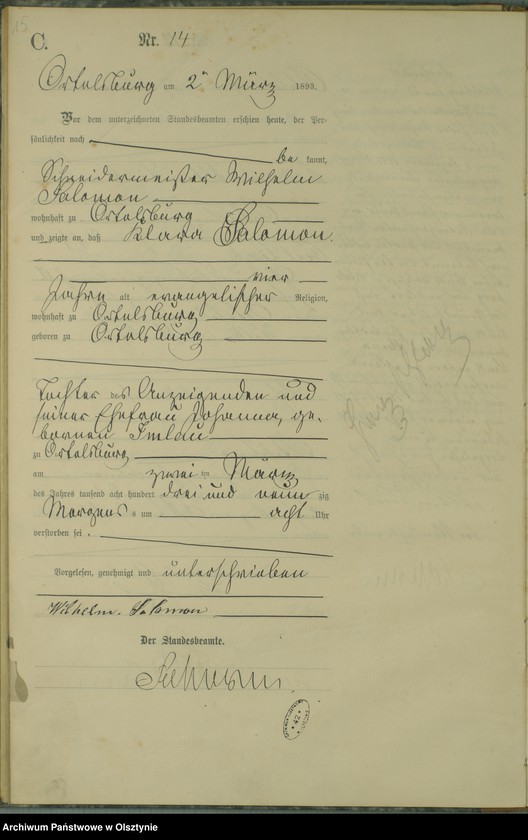 C.
Nr. 14
Ortelsburg am 2ten März 1893.
Vor dem unterzeichneten Standesbeamten erschien heute, der Per-
sönlichkeit nach
be kannt,
Schneidermeister Wilhelm
Salomon
wohnhaft zu Ortelsburg
und zeigte an, daß Klara Salomon.
vier
Jahre alt evangelischer Religion,
wohnhaft zu Ortelsburg
geboren zu Ortelsburg
Tochter des Anzeigenden und
seiner Ehefrau Johanna, ge-
bornen Imlau
zu Ortelsburg
am zwei ten März
des Jahres tausend acht hundert drei und neun zig
Morgens s um acht Uhr
verstorben sei.
Vorgelesen, genehmigt und unterschrieben
Wilhelm. Salomon
Der Standesbeamte.
Archiwum Państwowe w Olsztynie